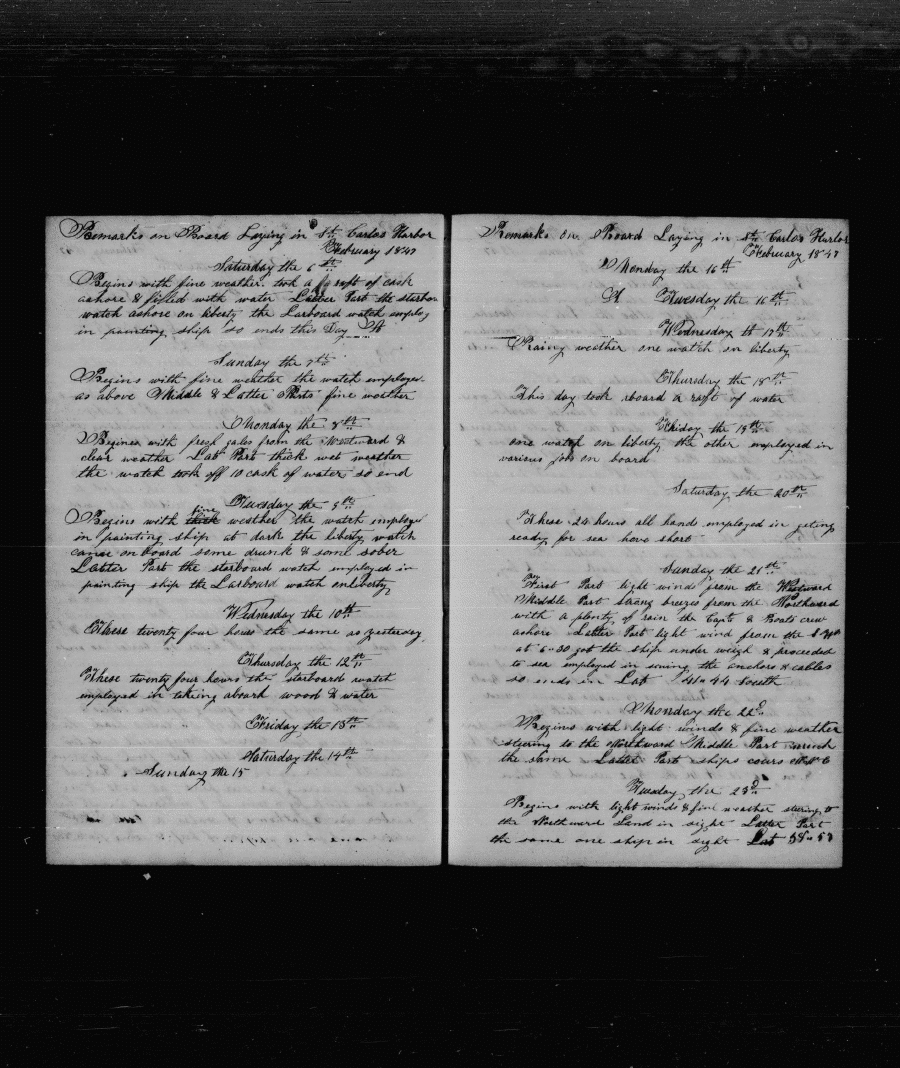 Remarks on Board Laying in St Carlos Harbor
February 1847
Saturday the 6th
Begins with fine weather. took a raft of cask
ashore & filled with water Latter Part the starbor
watch ashore on liberty the Larboard watch employ
in painting ship so ends this Day
Sunday the 7th
Begins with fine wehther the watch employed
as above Middle & Latter Parts fine weather
Monday the 8th
Begines with fresh gales from the Westward &
clear weather Lat Part thick wet weather
the watch took off 10 cask of water so end
Tuesday the 9th
fine
Begins with thick weather the watch employed
in painting ship at dark the liberty watch
came on board some drunk & some sober
Latter Part the starboard watch employed in
painting ship the Larboard watch on liberty
Wednesday the 10th
These twenty four hours the same as yesterday
Thursday the 12th
These twenty four hours the starboard watch
employed in taking aboard wood & water
Friday the 13th
Saturday the 14th
Sunday the 15
Remarks on Board Laying in St Carlos Harbor
February 1847
Monday the 16th
Tuesday the 16th
Wednesday th 17th
Rainy weather one watch on liberty
Thursday the 18th
This day took aboard a raft of water
Friday the 19th
one watch on liberty the other employed in
various jobs on board
Saturday the 20th
These 24 hours all hands employed in geting
ready for sea hove short
Sunday the 21st
First Part light winds from the Westward
Middle Part strong breezes from the Northward
with a plenty of rain the Capts & Boats crew
ashore Latter Part light wind from the
at 6-30 got the ship under weigh & proceeded
to sea employed in seuring the anchors & cables
so ends in Lat 41 44 South
Monday the 22d
Begins with light winds & fine weather
stering to the Northward Middle Part
the same Latter Part ships cours
Tuesday the 23d
Begins with light winds & fine weather stering to
the Northward Land in sight Latter Part
the same one ship in sight Lat 38 53